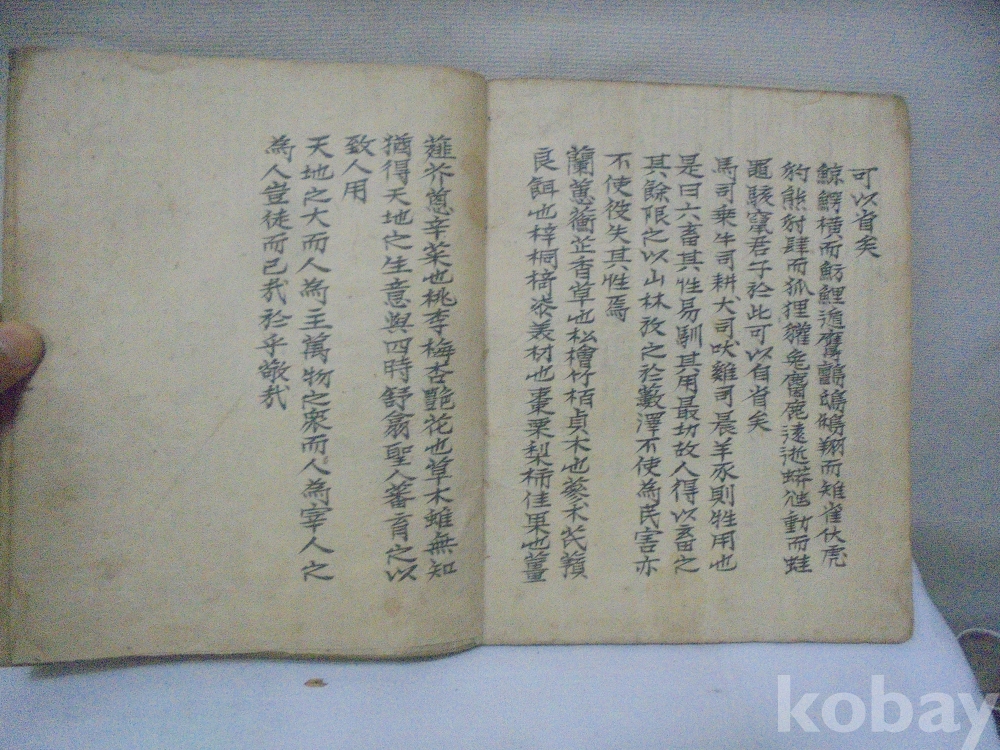 可以省矣
鯨鰐橫而魴鯉遁鷹鸇鴟鵂翔而雉雀伏虎
豹熊豺肆而狐狸貛兔麕鹿遠逝蟒虺動而蛙
黽駭竄君子於此可以自省矣
馬司乘牛司耕犬司吠雞司晨羊豕則牲用也
是曰六畜其性易馴其用最切故人得以畜之
其餘限之以山林放之於藪澤不使為民害亦
不使役失其性焉
蘭蕙蘅芷香草也松檜竹栢貞木也蔘朮芪
良餌也梓桐椅漆美材也棗栗梨柿佳果也薑
薤芥蔥辛菜也桃李梅杏艷花也草木雖無知
猶得天地之生意與四時舒翕聖人蕃育之以
致人用
天地之大而人為主萬物之衆而人為宰人之
為人豈徒而已哉於乎敬哉
kobay